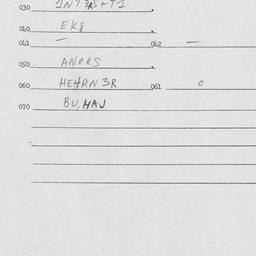 030
040 EK8
041 — 042 —
050 ANOKS
060 HE4RN3R 061 0
070 BU,HAJ